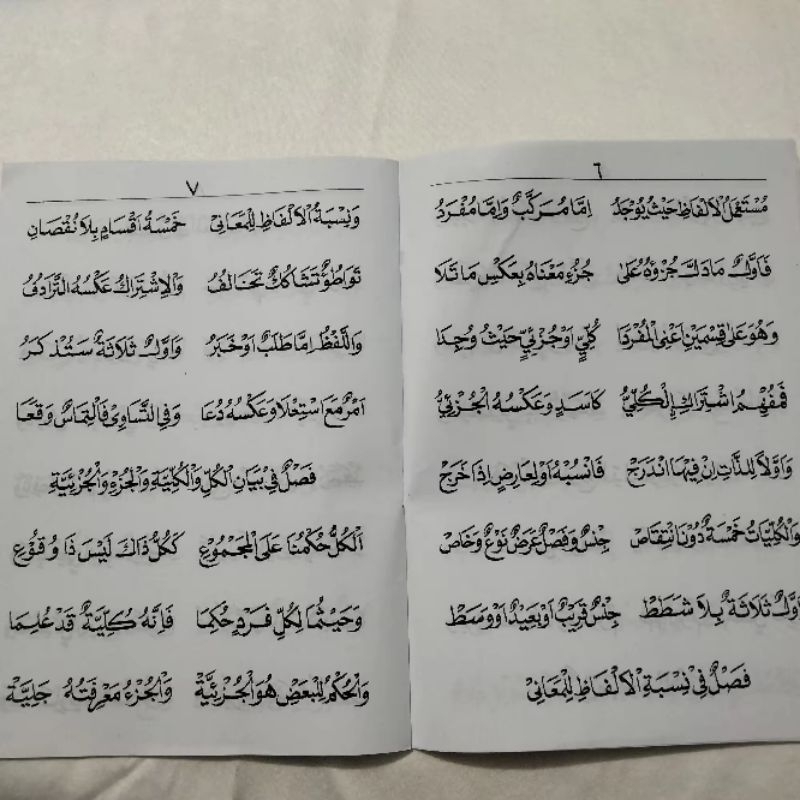 ٦
مُسْتَعْمَلُ الْاَلْفَاظِ حَيْثُ يُوْجَدُ اِمَّا مُرَكَّبٌ وَاِمَّا مُفْرَدُ
فَاَوَّلٌ مَادَلَّ جُزْؤُهُ عَلَى جُزْءِ مَعْنَاهُ بِعَكْسِ مَا تَلَا
وَهُوَ عَلَى قِسْمَيْنِ اَعْنِى الْمُفْرَدَا كُلِّيٍّ اَوْجُزْئِيٍّ حَيْثُ وُجِدَا
فَمُفْهِمُ اشْتِرَاكٍ اِلْكُلِّيُّ كَاَسَدٍ وَعَكْسُهُ الْجُزْئِيُّ
وَاَوَّلاً لِلذَّاتِ اِنْ فِيْهَا انْدَرَجْ فَانْسُبْهُ اَوْلِعَارِضٍ اِذَا خَرَجْ
وَالْكُلِّيَّاتُ خَمْسَةٌ دُوْنَ انْتِقَاصْ جِنْسٌ وَفَصْلٌ عَرَضٌ نَوْعٌ وَخَاصْ
اَوَّلٌ ثَلَاثَةٌ بِلَا شَطَطْ جِنْسٌ قَرِيْبٌ اَوْبَعِيْدٌ اَوْوَسَطْ
فَصْلٌ فِيْ نِسْبَةِ الْاَلْفَاظِ لِلْمَعَانِيْ
٧
وَنِسْبَةُ الْاَلْفَاظِ لِلْمَعَانِيْ خَمْسَةُ اَقْسَامٍ بِلَا نُقْصَانِ
تَوَاطُؤٌ تَشَاكُكٌ تَخَالُفُ وَالْاِشْتِرَاكُ عَكْسُهُ التَّرَادُفُ
وَاللَّفْظُ اِمَّا طَلَبٌ اَوْخَبَرُ وَاَوَّلٌ ثَلَاثَةٌ سَتُذْكَرُ
اَمْرٌ مَعَ اسْتِعْلَا وَعَكْسُهُ دُعَا وَفِى التَّسَاوِى فَالْتِمَاسٌ وَقَعَا
فَصْلٌ فِيْ بَيَانِ الْكُلِّ وَالْكُلِّيَّةِ وَالْجُزْءِ وَالْجُزْئِيَّةِ
اَلْكُلُّ حُكْمُنَا عَلَى الْمَجْمُوْعِ كَكُلُّ ذَاكَ لَيْسَ ذَا وُقُوْعِ
وَحَيْثُمَا لِكُلِّ فَرْدٍ حُكِمَا فَاِنَّهُ كُلِّيَّةٌ قَدْ عُلِمَا
وَالْحُكْمُ لِلْبَعْضِ هُوَ الْجُزْئِيَّةْ وَالْجُزْءُ مَعْرِفَتُهُ جَلِيَّةْ